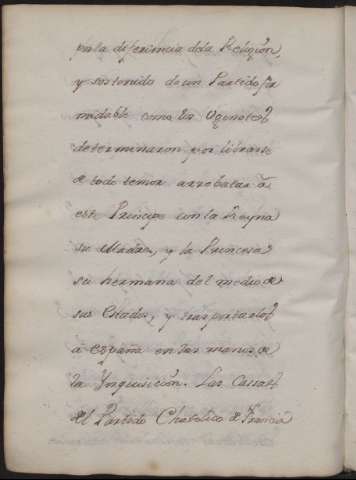 por la diferencia de la Religion,
y sostenido de un Partido for
midable como los Ugonotes
determinaron por librarse
de todo temor arrebatar à
este Principe con la Reyna
su Madre, y la Princesa
su hermana del medio de
sus Estados, y trasportarlos
à España en las manos de
la Ynquisicion. Las
del Partido Chatolico de Francia